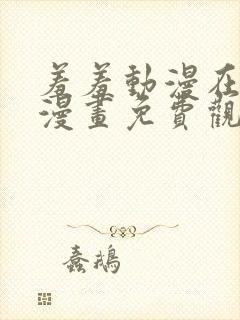 羞羞動漫在
漫畫免費觀
蠢鵝